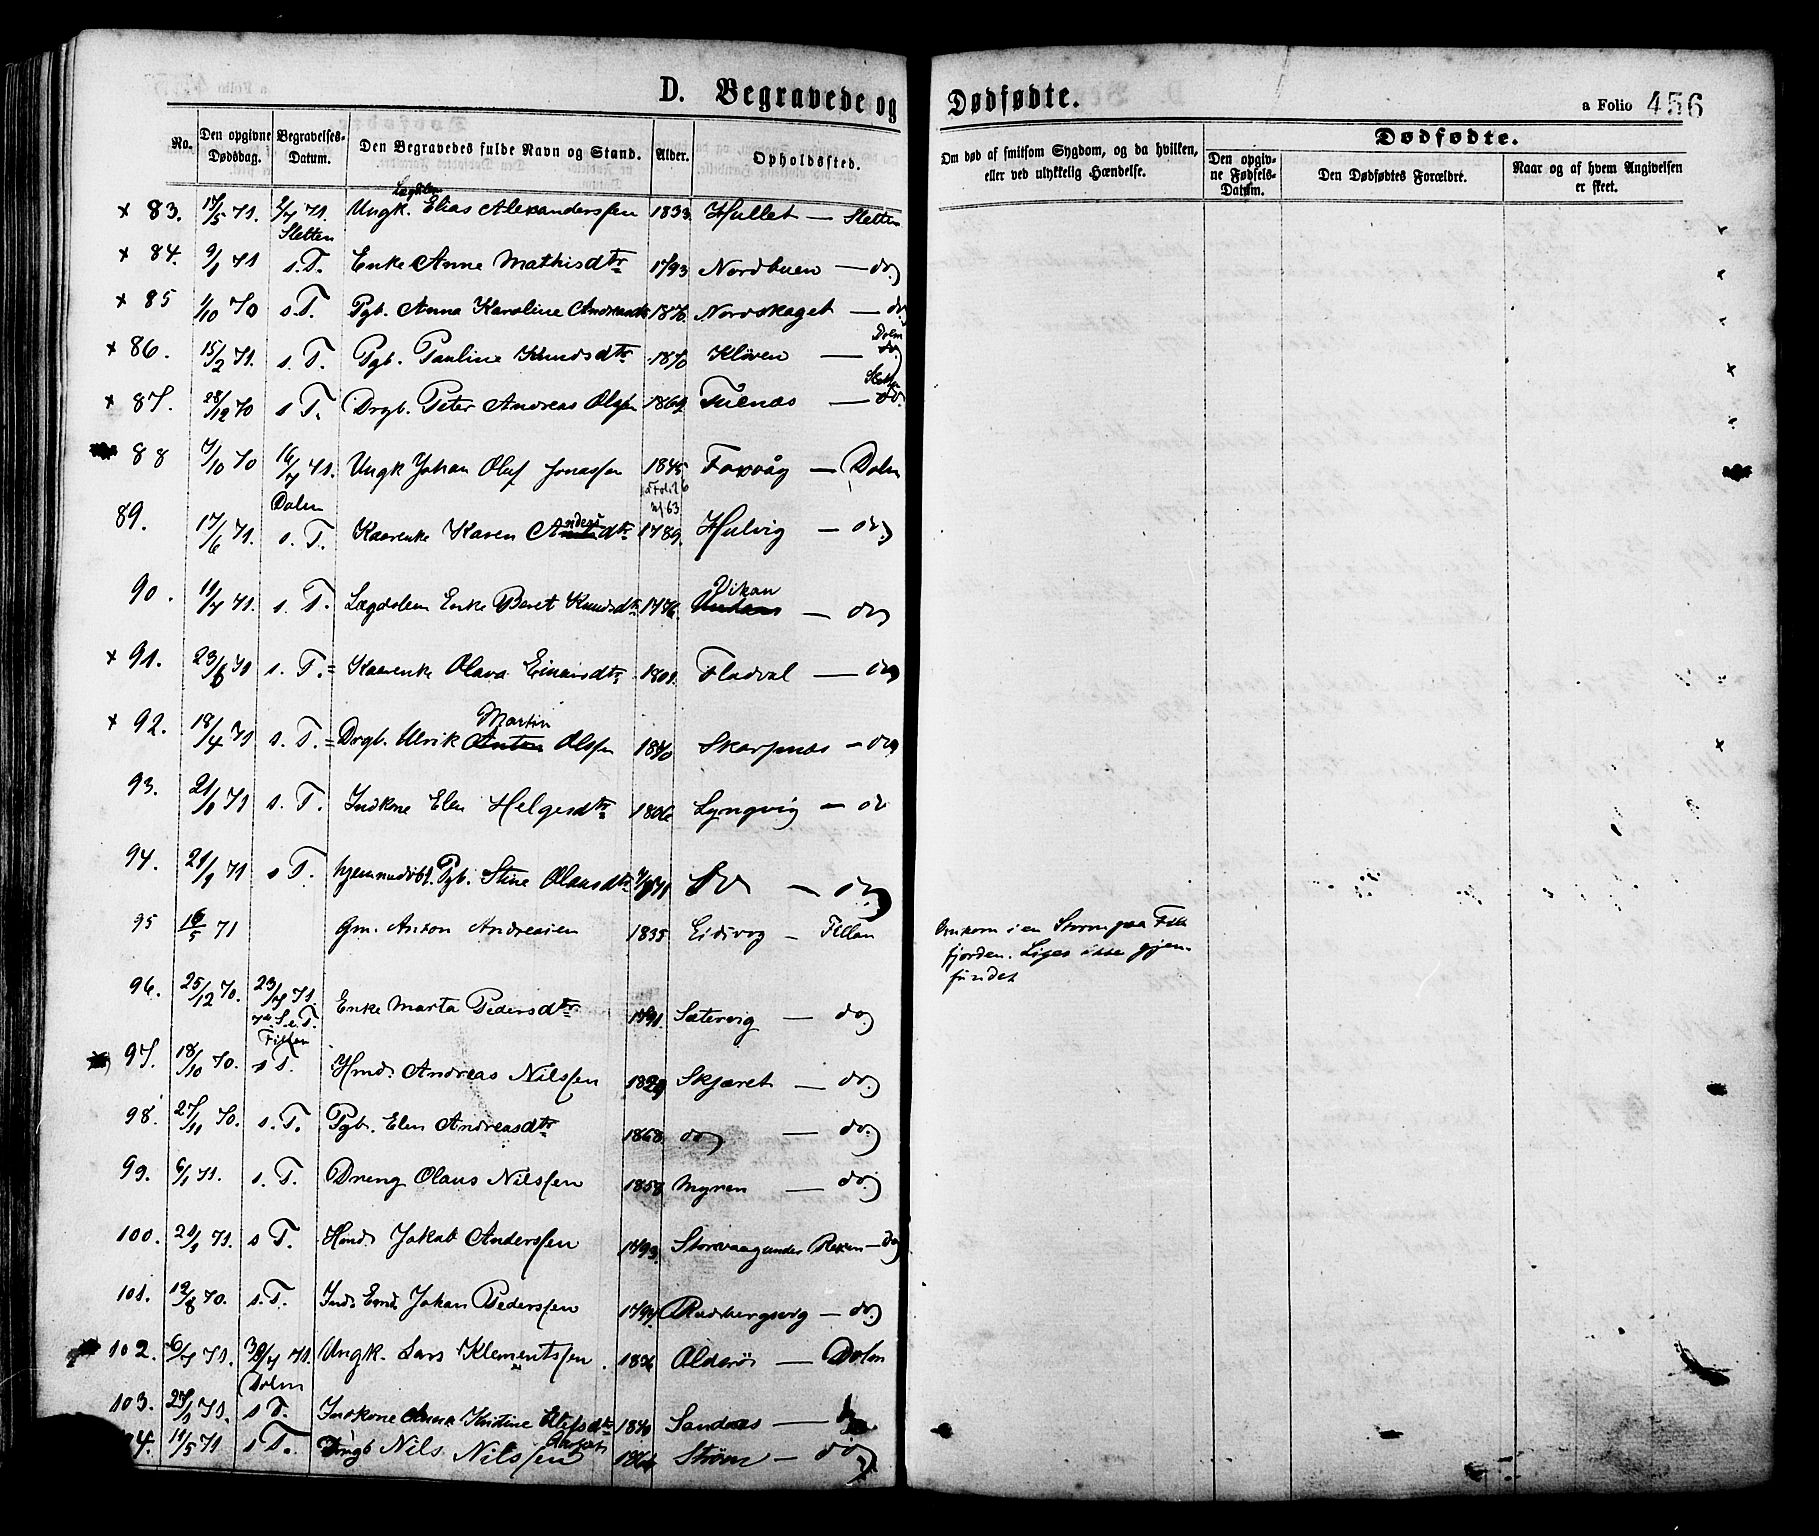 D. Begravede og Dødfødte. a Folio 456
Dødfødte.
No. Den opgivne Dødsdag. Begravelses-Datum. Den Begravedes fulde Navn og Stand. Alder. Opholdssted. Om død af smitsom Sygdom, og da hvilken, eller ved ulykkelig Hændelse. Den opgivne Fødsels-Datum. Den Dødfødtes Forældre. Naar og af hvem Angivelsen er skeet.
x 83. 17/5 71. 2/7 71. Sletten Ungk. Elias Alexanderssen 1833 Hullet — Sletten
x 84. 9/1 71 s. T. Enke Anne Mathisdtr 1793 Nordbuen — do
x 85 1/10 70 s. T. Pgb. Anna Karoline 1870. Nordskaget — do
x 86. 15/2 71. s. T. Pgb. Pauline Knudsdtr 1870 Kløven — Dolm
x 87. 28/12 70 s T. Drgb. Peter Andreas Olssen 1869 — Sletten
88 7/10 70 16/7 71. Dolm Ungk Johan Oluf Jonassen 1845 Foxvåg — Dolm
89. 17/6 71. s. T. Kaarenke Karen Andersdtr 1789. Hulvig — do
90. 11/7 71. s. T. Lægdslem Enke Beret Knudsdtr 1776. Vikan — do
x 91. 23/6 71 s. T. = Kaarenke Olava Einarsdtr 1801. Fladval — do
x 92. 18/4 71 s. T. = Drgb. Ulrik Martin Olssen 1870 Skarpnæs — do
93. 21/1 71 s. T. Indkone Elen Helgesdtr 1806 Lyngvig — do
94. 21/1 71 s T. hjemmedøbt. Pgb. Stine Olausdtr do — do
95 16/5 71 Gm. Anton Andreasen 1835 Eidsvog — Fillan Omkom i en Storm paa
fjorden. Liget ikke gjen-
fundet
96. 25/12 70. 23/7 71. Fillan Enke Marta Pedersdtr 1791. Sætervig — do
97. 18/10 70. s T. Hmd. Andreas Nilssen 1829 Skjæret — do
98. 27/11 70. s. T. Pgb. Elen Andreasdtr 1868. do — do
99. 6/1 71. s. T. Dreng Olaus Nilssen 1858 Myren — do
100. 21/1 71. s T. Hmd. Jakob Andersen 1793. Storvaag under Rexen — do
101. 12/8 70. s. T. Inds Emd. Johan Pederssen 1794. Rudbergsvig — do
102. 6/7 71. 30/7 71. Dolm Ungk. Lars Klementssen. 1836 Alderø — Dolm
103. 27/1 71. s T. Indkone Anna Kristine 1840 Sandnæs — do
104. 11/5 71 s T. Drngb Nils Nilssen Strøm — do